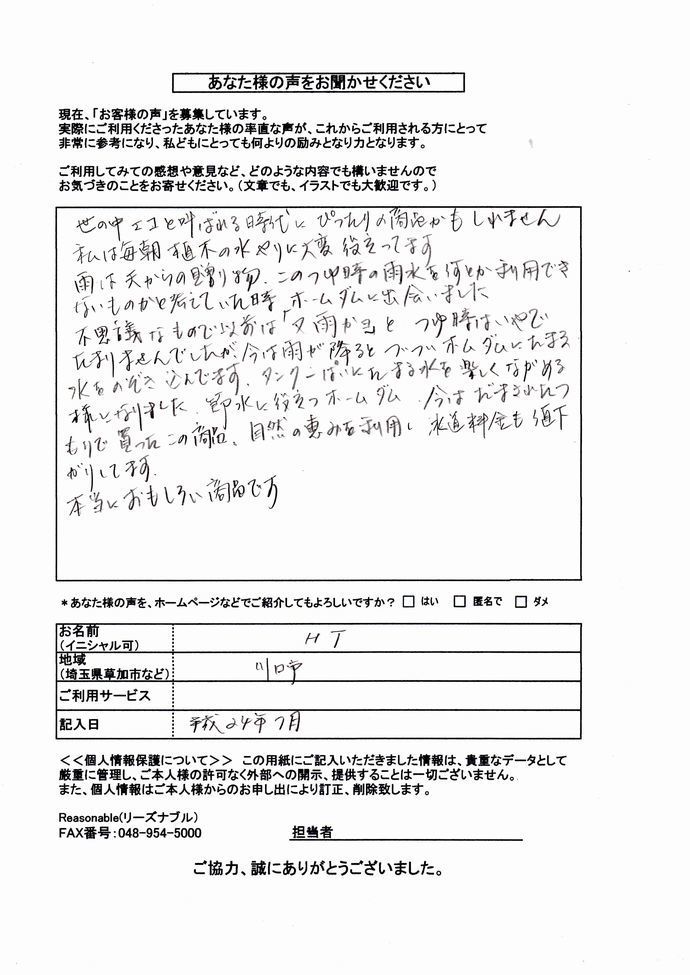 あなた様の声をお聞かせください
現在、「お客様の声」を募集しています。
実際にご利用くださったあなた様の率直な声が、これからご利用される方にとって
非常に参考になり、私どもにとっても何よりの励みとなり力となります。
ご利用してみての感想や意見など、どのような内容でも構いませんので
お気づきのことをお寄せください。(文章でも、イラストでも大歓迎です。)
世の中エコと叫ばれる時代にぴったりの商品かもしれません
私は毎朝植木の水やりに大変役立ってます
雨は天からの贈り物、このつゆ時の雨水を何とか利用でき
ないものかと考えていた時ホームダムに出会いました
不思議なもので以前は「又雨か」とつゆ時はいやで
たまりませんでしたが、今は雨が降るとホームダムにたまる
水をのぞき込んでます。タンクいっぱいにたまる水を楽しくながめる
様になりました。節水に役立つホームダム、今はだまされたつ
もりで買ったこの商品、自然の恵みを利用し水道料金も値下
がりしてます。
本当におもしろい商品です
*あなた様の声を、ホームページなどでご紹介してもよろしいですか? □ はい □ 匿名で □ ダメ
お名前
(イニシャル可) HT
地域
(埼玉県草加市など) 川口市
ご利用サービス
記入日 平成24年7月
<<個人情報保護について>> この用紙にご記入いただきました情報は、貴重なデータとして
厳重に管理し、ご本人様の許可なく外部への開示、提供することは一切ございません。
また、個人情報はご本人様からのお申し出により訂正、削除致します。
Reasonable(リーズナブル)
FAX番号:048-954-5000 担当者
ご協力、誠にありがとうございました。